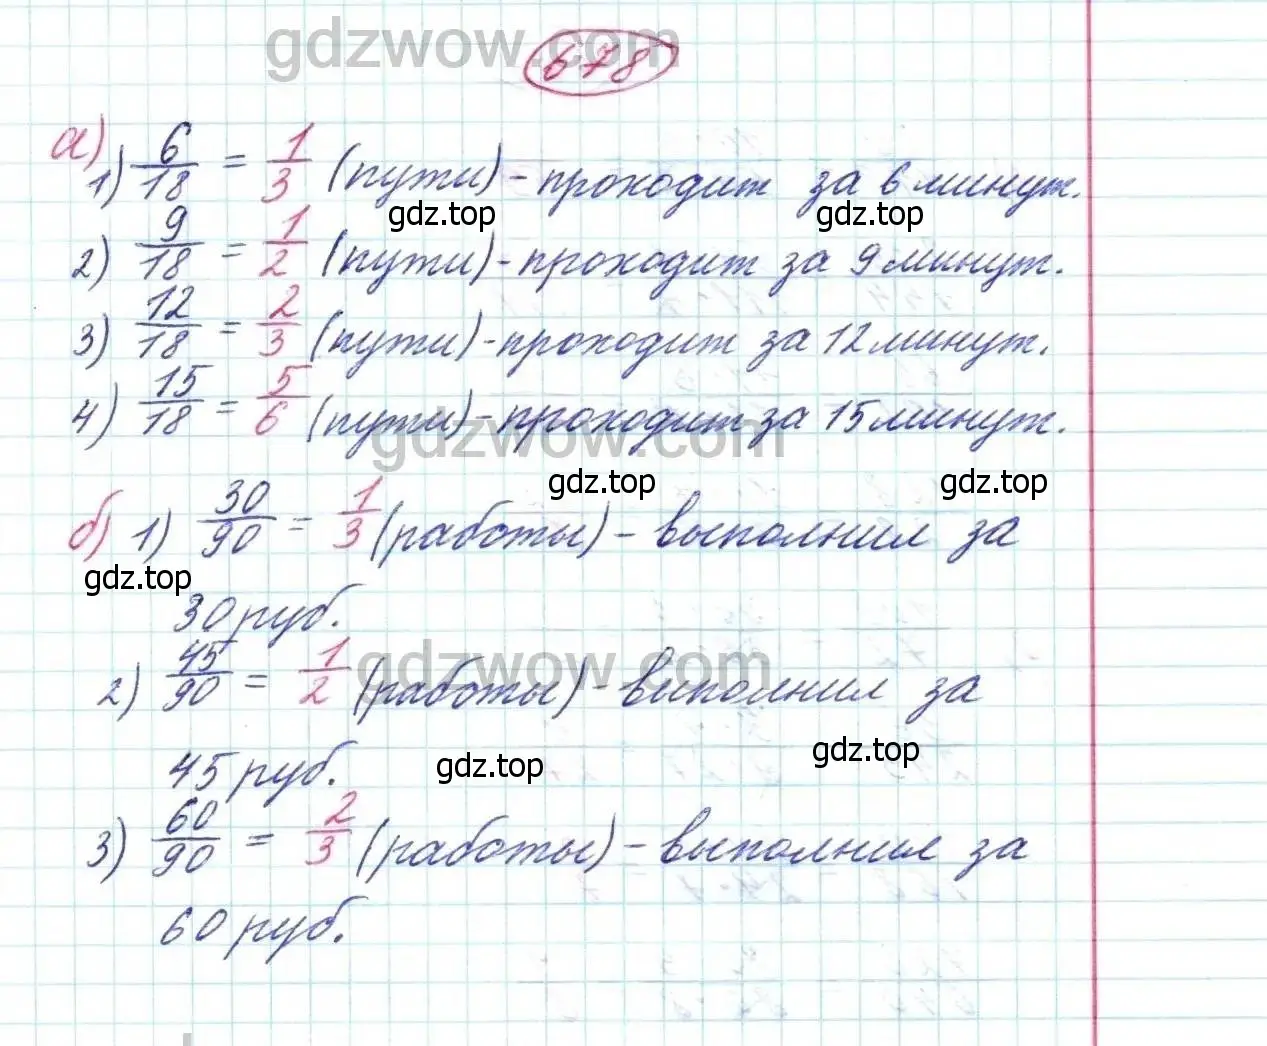 gdzwow.com
678
а)
1) 6/18 = 1/3 (пути) - проходит за 6 минут.
gdz.top gdz.top
2) 9/18 = 1/2 (пути) - проходит за 9 минут.
3) 12/18 = 2/3 (пути) - проходит за 12 минут.
4) 15/18 = 5/6 (пути) - проходит за 15 минут.
gdzwow.com
gdz.top gdz.top
б) 1) 30/90 = 1/3 (работы) - выполнил за
gdz.top
30 руб.
gdzwow.com
2) 45/90 = 1/2 (работы) - выполнил за
45 руб.
gdz.top gdz.top
3) 60/90 = 2/3 (работы) - выполнил за
60 руб.